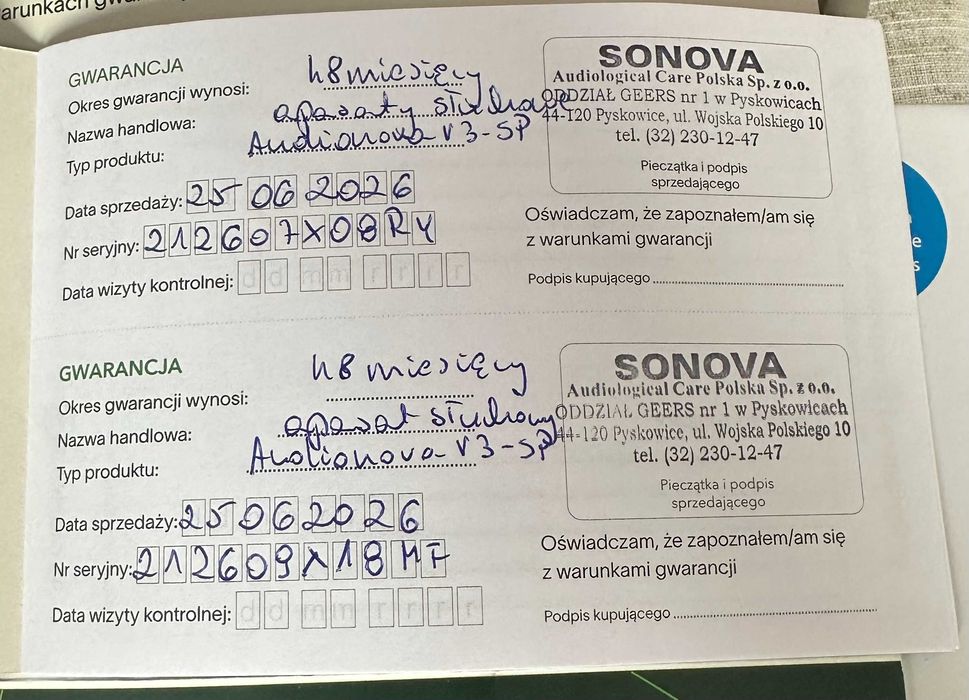 arunkach gwar
GWARANCJA
Okres gwarancji wynosi: 48 miesięcy
Nazwa handlowa: aparaty słuchowe
Typ produktu: Audionova V3-SP
Data sprzedaży: 25 06 2026
Nr seryjny: 212607X08RY
Data wizyty kontrolnej: dd mm rrrr
SONOVA
Audiological Care Polska Sp. z o.o.
ODDZIAŁ GEERS nr 1 w Pyskowicach
44-120 Pyskowice, ul. Wojska Polskiego 10
tel. (32) 230-12-47
Pieczątka i podpis
sprzedającego
Oświadczam, że zapoznałem/am się
z warunkami gwarancji
Podpis kupującego
GWARANCJA
Okres gwarancji wynosi: 48 miesięcy
Nazwa handlowa: aparat słuchowy
Typ produktu: Audionova V3-SP
Data sprzedaży: 25 06 2026
Nr seryjny: 212609X18MF
Data wizyty kontrolnej: dd mm rrrr
SONOVA
Audiological Care Polska Sp. z o.o.
ODDZIAŁ GEERS nr 1 w Pyskowicach
44-120 Pyskowice, ul. Wojska Polskiego 10
tel. (32) 230-12-47
Pieczątka i podpis
sprzedającego
Oświadczam, że zapoznałem/am się
z warunkami gwarancji
Podpis kupującego
e
s